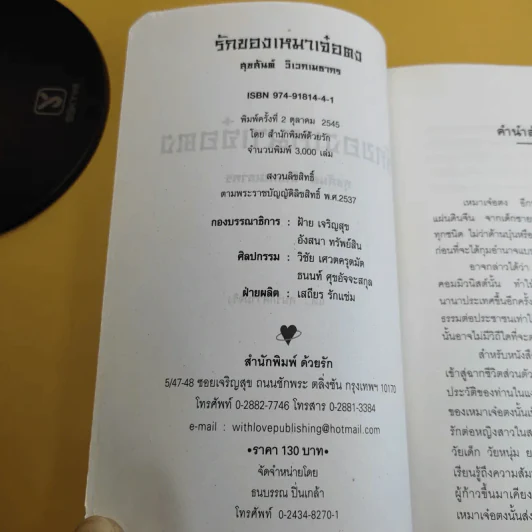 รักของเหมาเจ๋อตง
สุขสันต์ วิเวกเมธากร
ISBN 974-91814-4-1
พิมพ์ครั้งที่ 2 ตุลาคม 2545
โดย สำนักพิมพ์ด้วยรัก
จำนวนพิมพ์ 3,000 เล่ม
สงวนลิขสิทธิ์
ตามพระราชบัญญัติลิขสิทธิ์ พ.ศ.2537
กองบรรณาธิการ : ฝ้าย เจริญสุข
อังสนา ทรัพย์สิน
ศิลปกรรม : วิชัย เศวตครุตมัต
ธนนท์ ศุขอัจจะสกุล
ฝ่ายผลิต : เสถียร รักแซ่ม
สำนักพิมพ์ ด้วยรัก
5/47-48 ซอยเจริญสุข ถนนชักพระ ตลิ่งชัน กรุงเทพฯ 10170
โทรศัพท์ 0-2882-7746 โทรสาร 0-2881-3384
e-mail : withlovepublishing@hotmail.com
•ราคา 130 บาท•
จัดจำหน่ายโดย
ธนบรรณ ปิ่นเกล้า
โทรศัพท์ 0-2434-8270-1
คำนำ
เหมาเจ๋อตง
แผ่นดินจีน จากเด็กชาย
ทุกชนิด ไม่ว่าด้านบุ๋นหรือ
ก่อนที่จะได้กุมอำนาจแบบ
อาจกล่าวได้ว่า
คอมมิวนิสต์นั้น ทำให้
นานาประเทศขึ้นอีกครั้ง
ธรรมต่อประชาชนเท่าใ
นั้นอาจไม่มีวิถีใดที่จะต
สำหรับหนังสือ
เข้าสู่ฉากชีวิตส่วนตัว
ประวัติของท่านในแ
ของเหมาเจ๋อตงนั้นเ
รักต่อหญิงสาวในส
วัยเด็ก วัยหนุ่ม ย
เรียนรู้ถึงความสัม
ผู้ก้าวขึ้นมาเคียง
เหมาเจ๋อตงนั้นส่ง